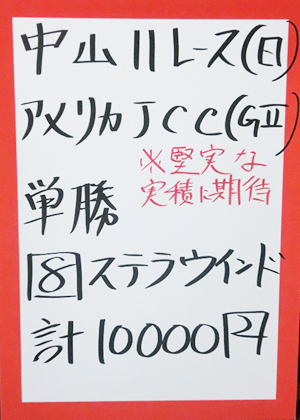 中山11レース(日)
アメリカJCC(GⅡ)
※堅実な
実積に期待
単勝
8ステラウインド
計10000円